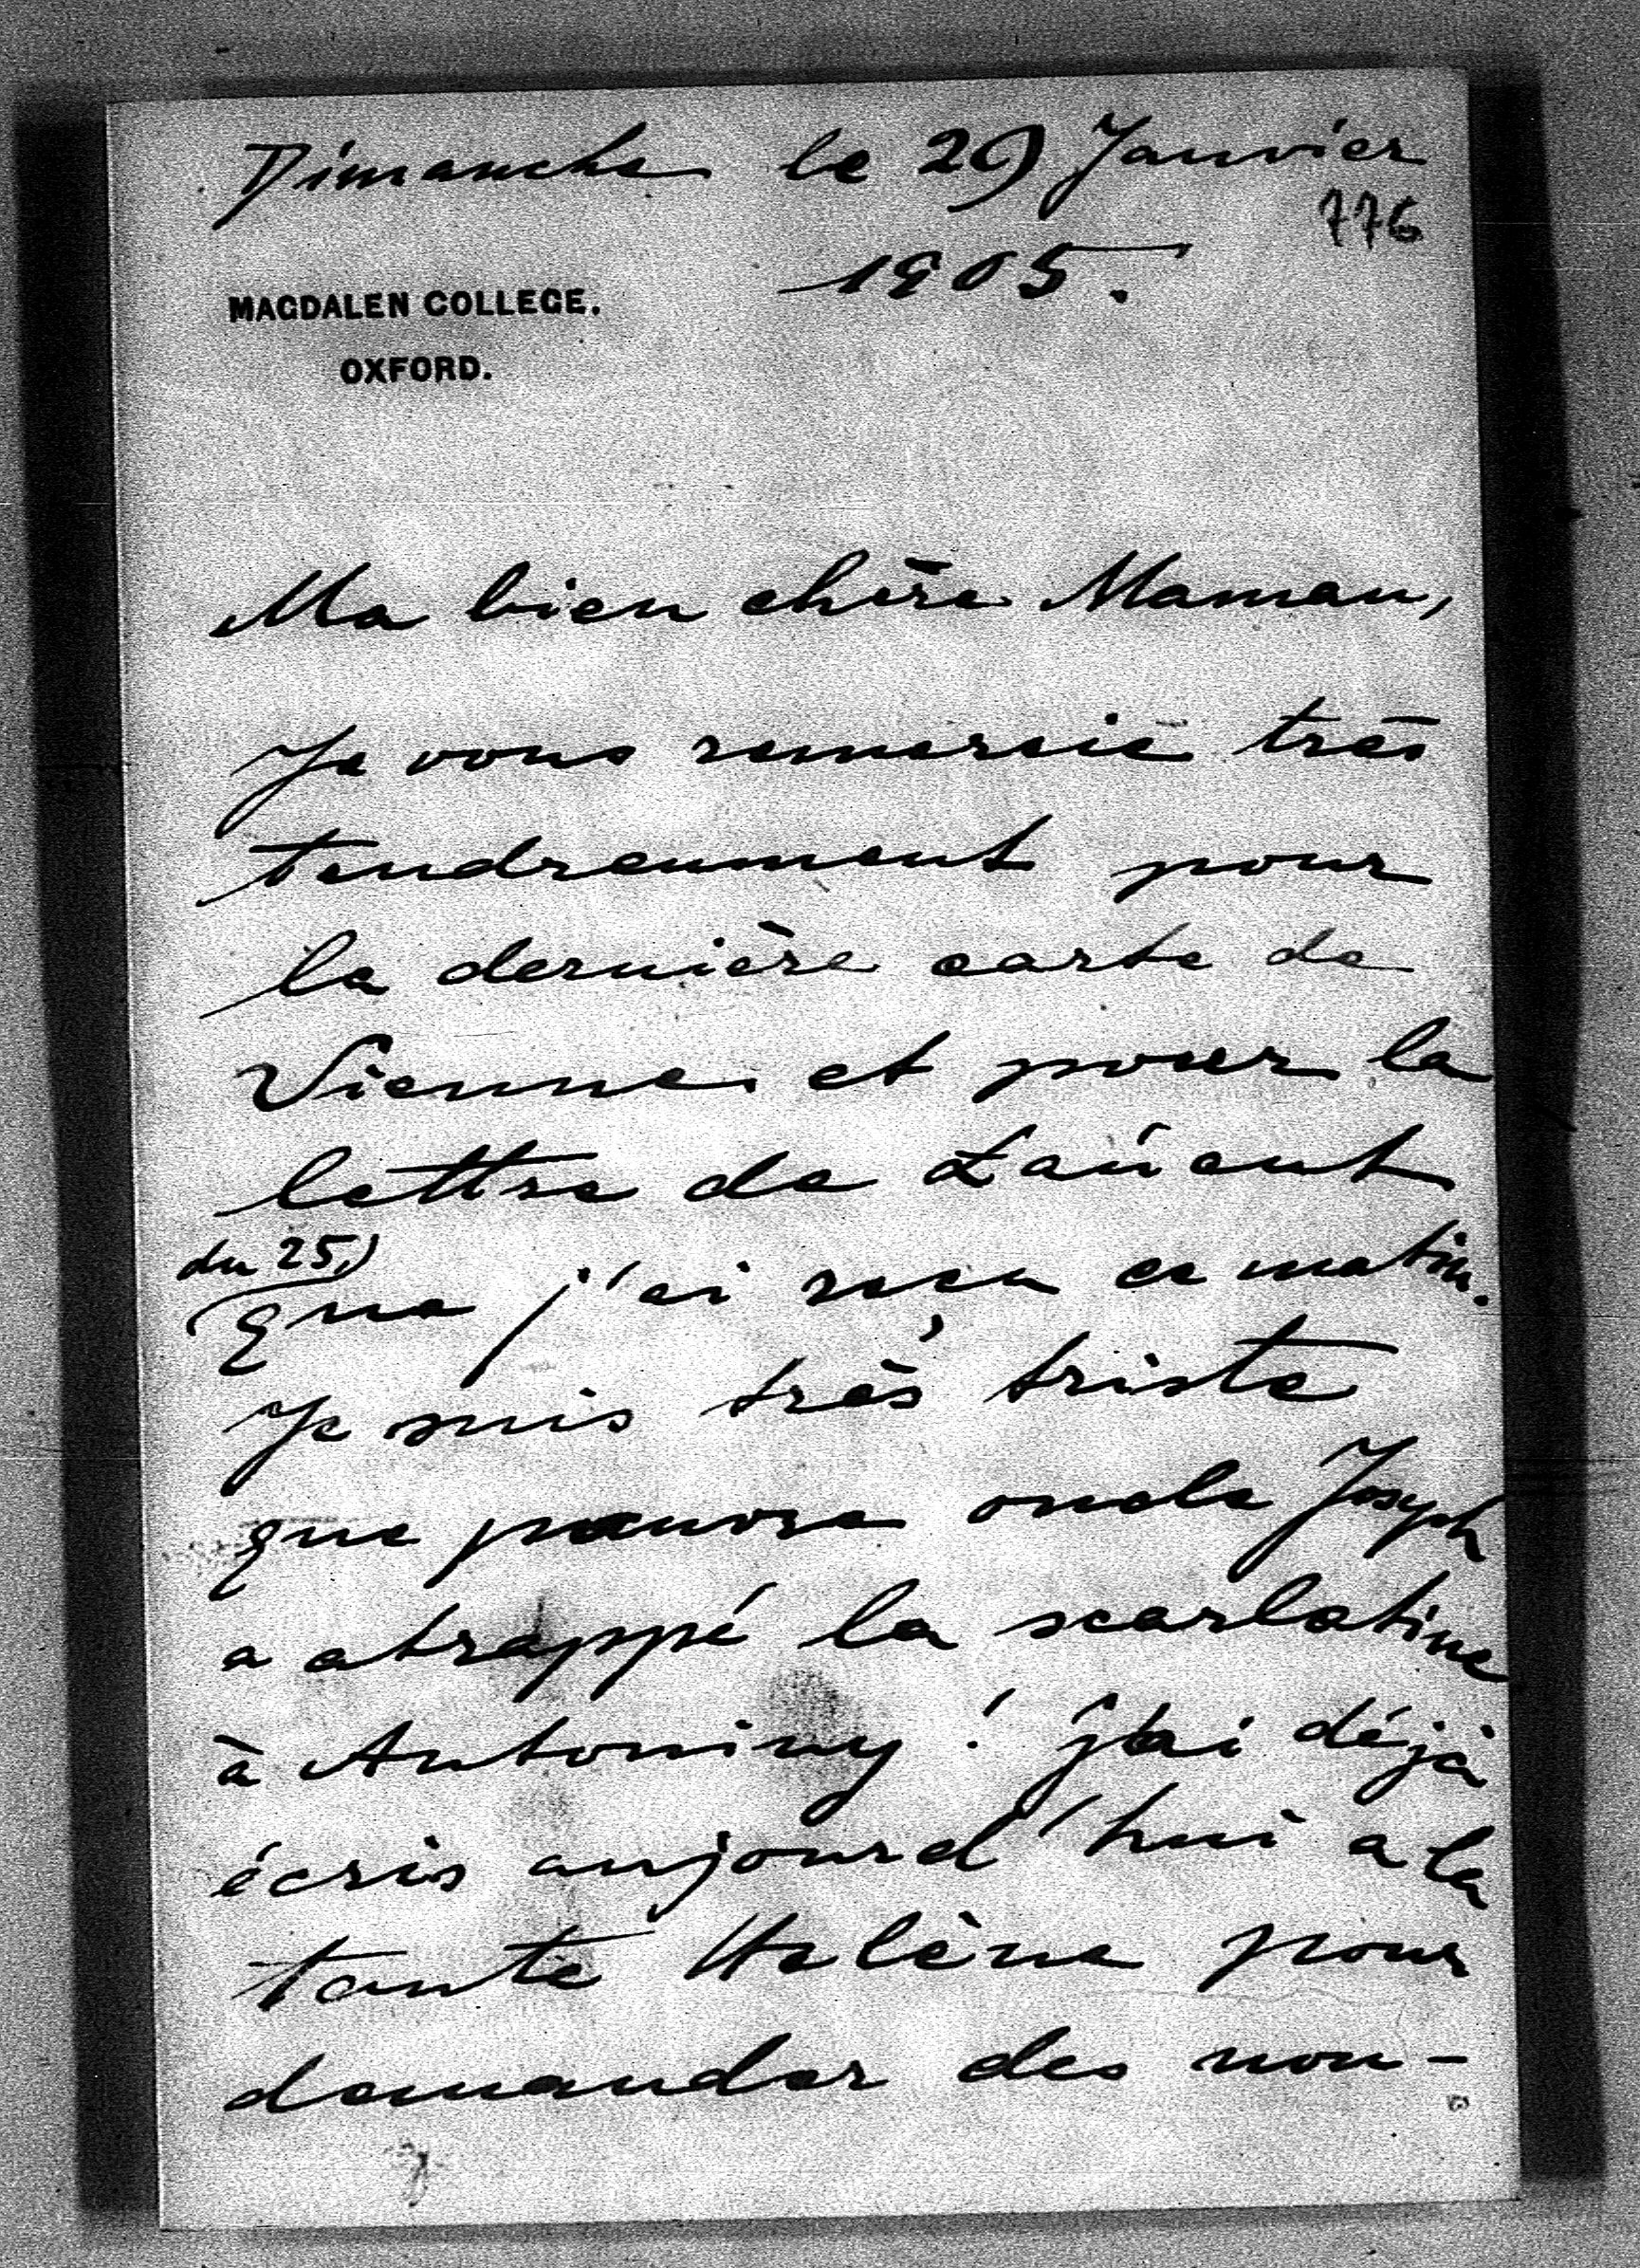 Dimanche le 29 Janvier
776
1905.
MAGDALEN COLLEGE.
OXFORD.
Ma bien chère Maman,
Je vous remercie très
tendreument pour
la dernière carte de
Vienne et pour la
lettre de Łańcut
du 25.)
(que j'ai reçu ce matin.
Je suis très triste
que pauvre oncle Joseph
a atrappé la scarlatine
à Antoniny! j'ai déjà
écris aujourd'hui a la
tante Helène pour
demander des nou-